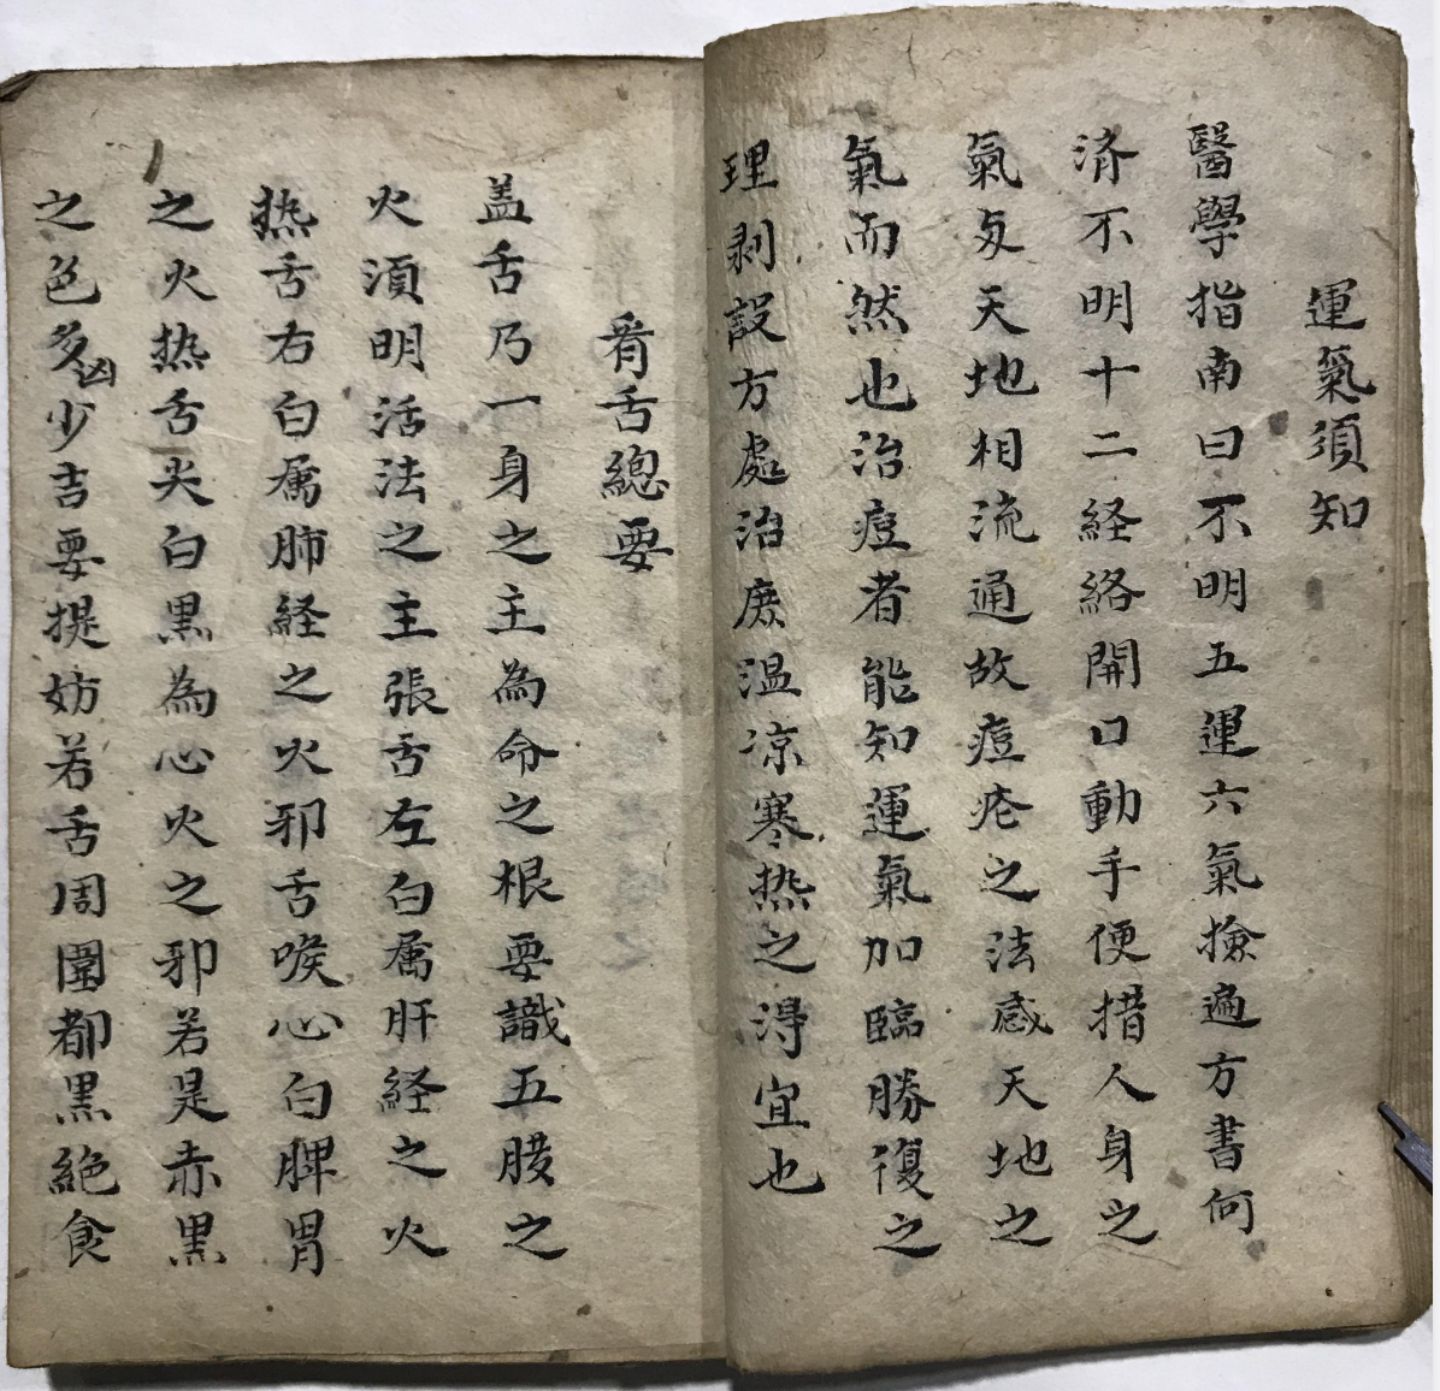 運氣須知
醫學指南曰不明五運六氣撿遍方書何
济不明十二経絡開口動手便措人身之
氣与天地相流通故痘疮之法感天地之
氣而然也治痘者能知運氣加臨勝復之
理剥設方處治庶温凉寒热之得宜也
看舌總要
盖舌乃一身之主為命之根要識五臓之
火須明活法之主張舌左白属肝経之火
热舌右白属肺経之火邪舌喉心白脾胃
之火热舌尖白黒為心火之邪若是赤黒
之色多凶少吉要提妨若舌周圍都黒絶食